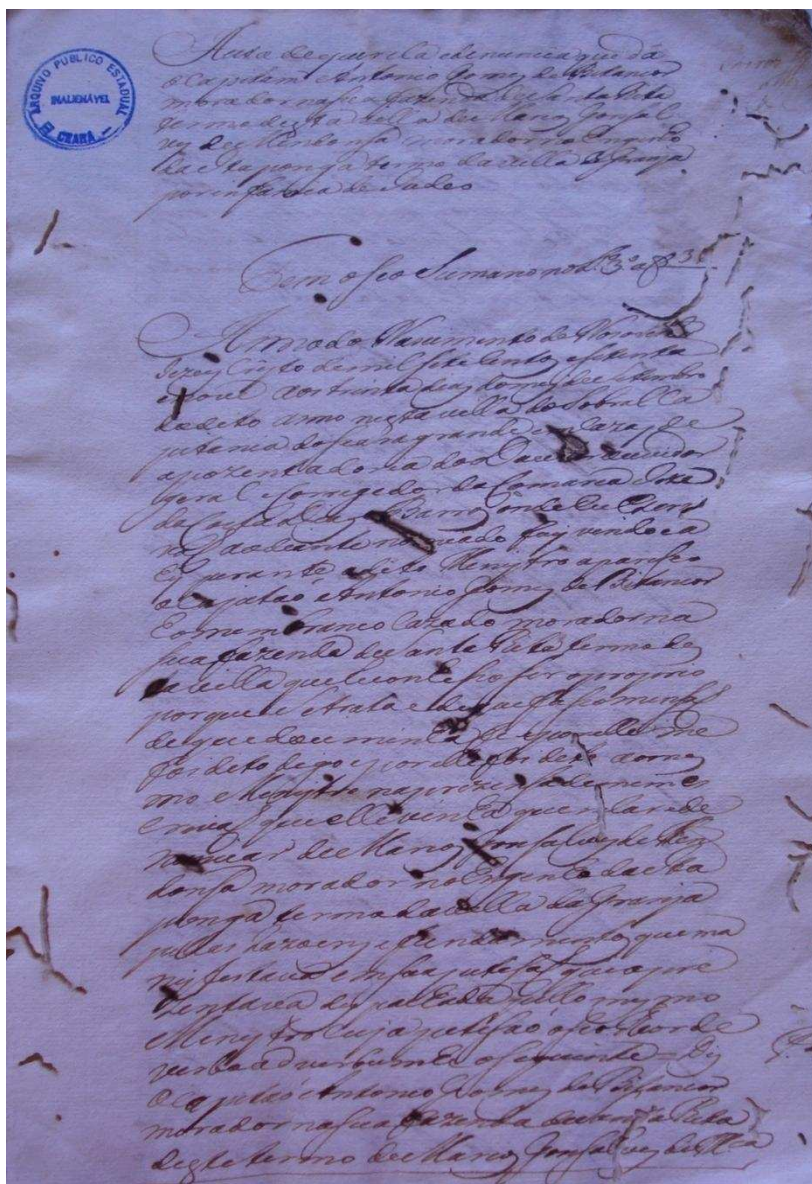 ARQUIVO PÚBLICO ESTADUAL
INALIENÁVEL
CEARÁ
Auto de querela e denuncia que dá
o Capitam Antonio Gomes de Bitancor
morador na sua fazenda de Santa Rita
termo desta villa de Marcos Gonsal
ves de Mendonsa morador no Engenho
da termo da villa da Granja
por infamia de
Anno do Nascimento de Nosso
Jezus Cristo de mil sete centos e setenta
e nove aos trinta dias do mes de Setembro
do dito anno nesta villa do Sobral Ca
pitania do Seara grande e cazas de
apozentadoria do Doutor ouvidor
geral e Corregedor da Comarca Joze
da Costa Dias e Barros onde eu Escri
vam adeante nomeado fuy vindo e a
hy perante o dito Menystro apareseo
o Capitaó Antonio Gomes de Bitancor
homem branco cazado morador na
sua fazenda de Santa Rita termo des
ta villa que reconheso ser o proprio
porque se trata e
de que dou minha fé e por elle me
foi dito digo e por elle foi dito ao mes
mo Menystro na prezensa de mim es
crivaó que elle vinha querelar e de
nunciar de Marcos Gonsalves de Men
donsa morador no Engenho da
termo da villa da Granja
pellas razoens e fundamentos que ma
nifestava em sua petisaó que apre
zentava despaxada pello mesmo
Menystro cuja petisaó o seo teor de
verbo ad verbum he o seguinte = Dis
o Capitaó Antonio Gomes de Bitancor
morador na sua fazenda de Santa Rita
deste termo de Marcos Gonsalves de Me